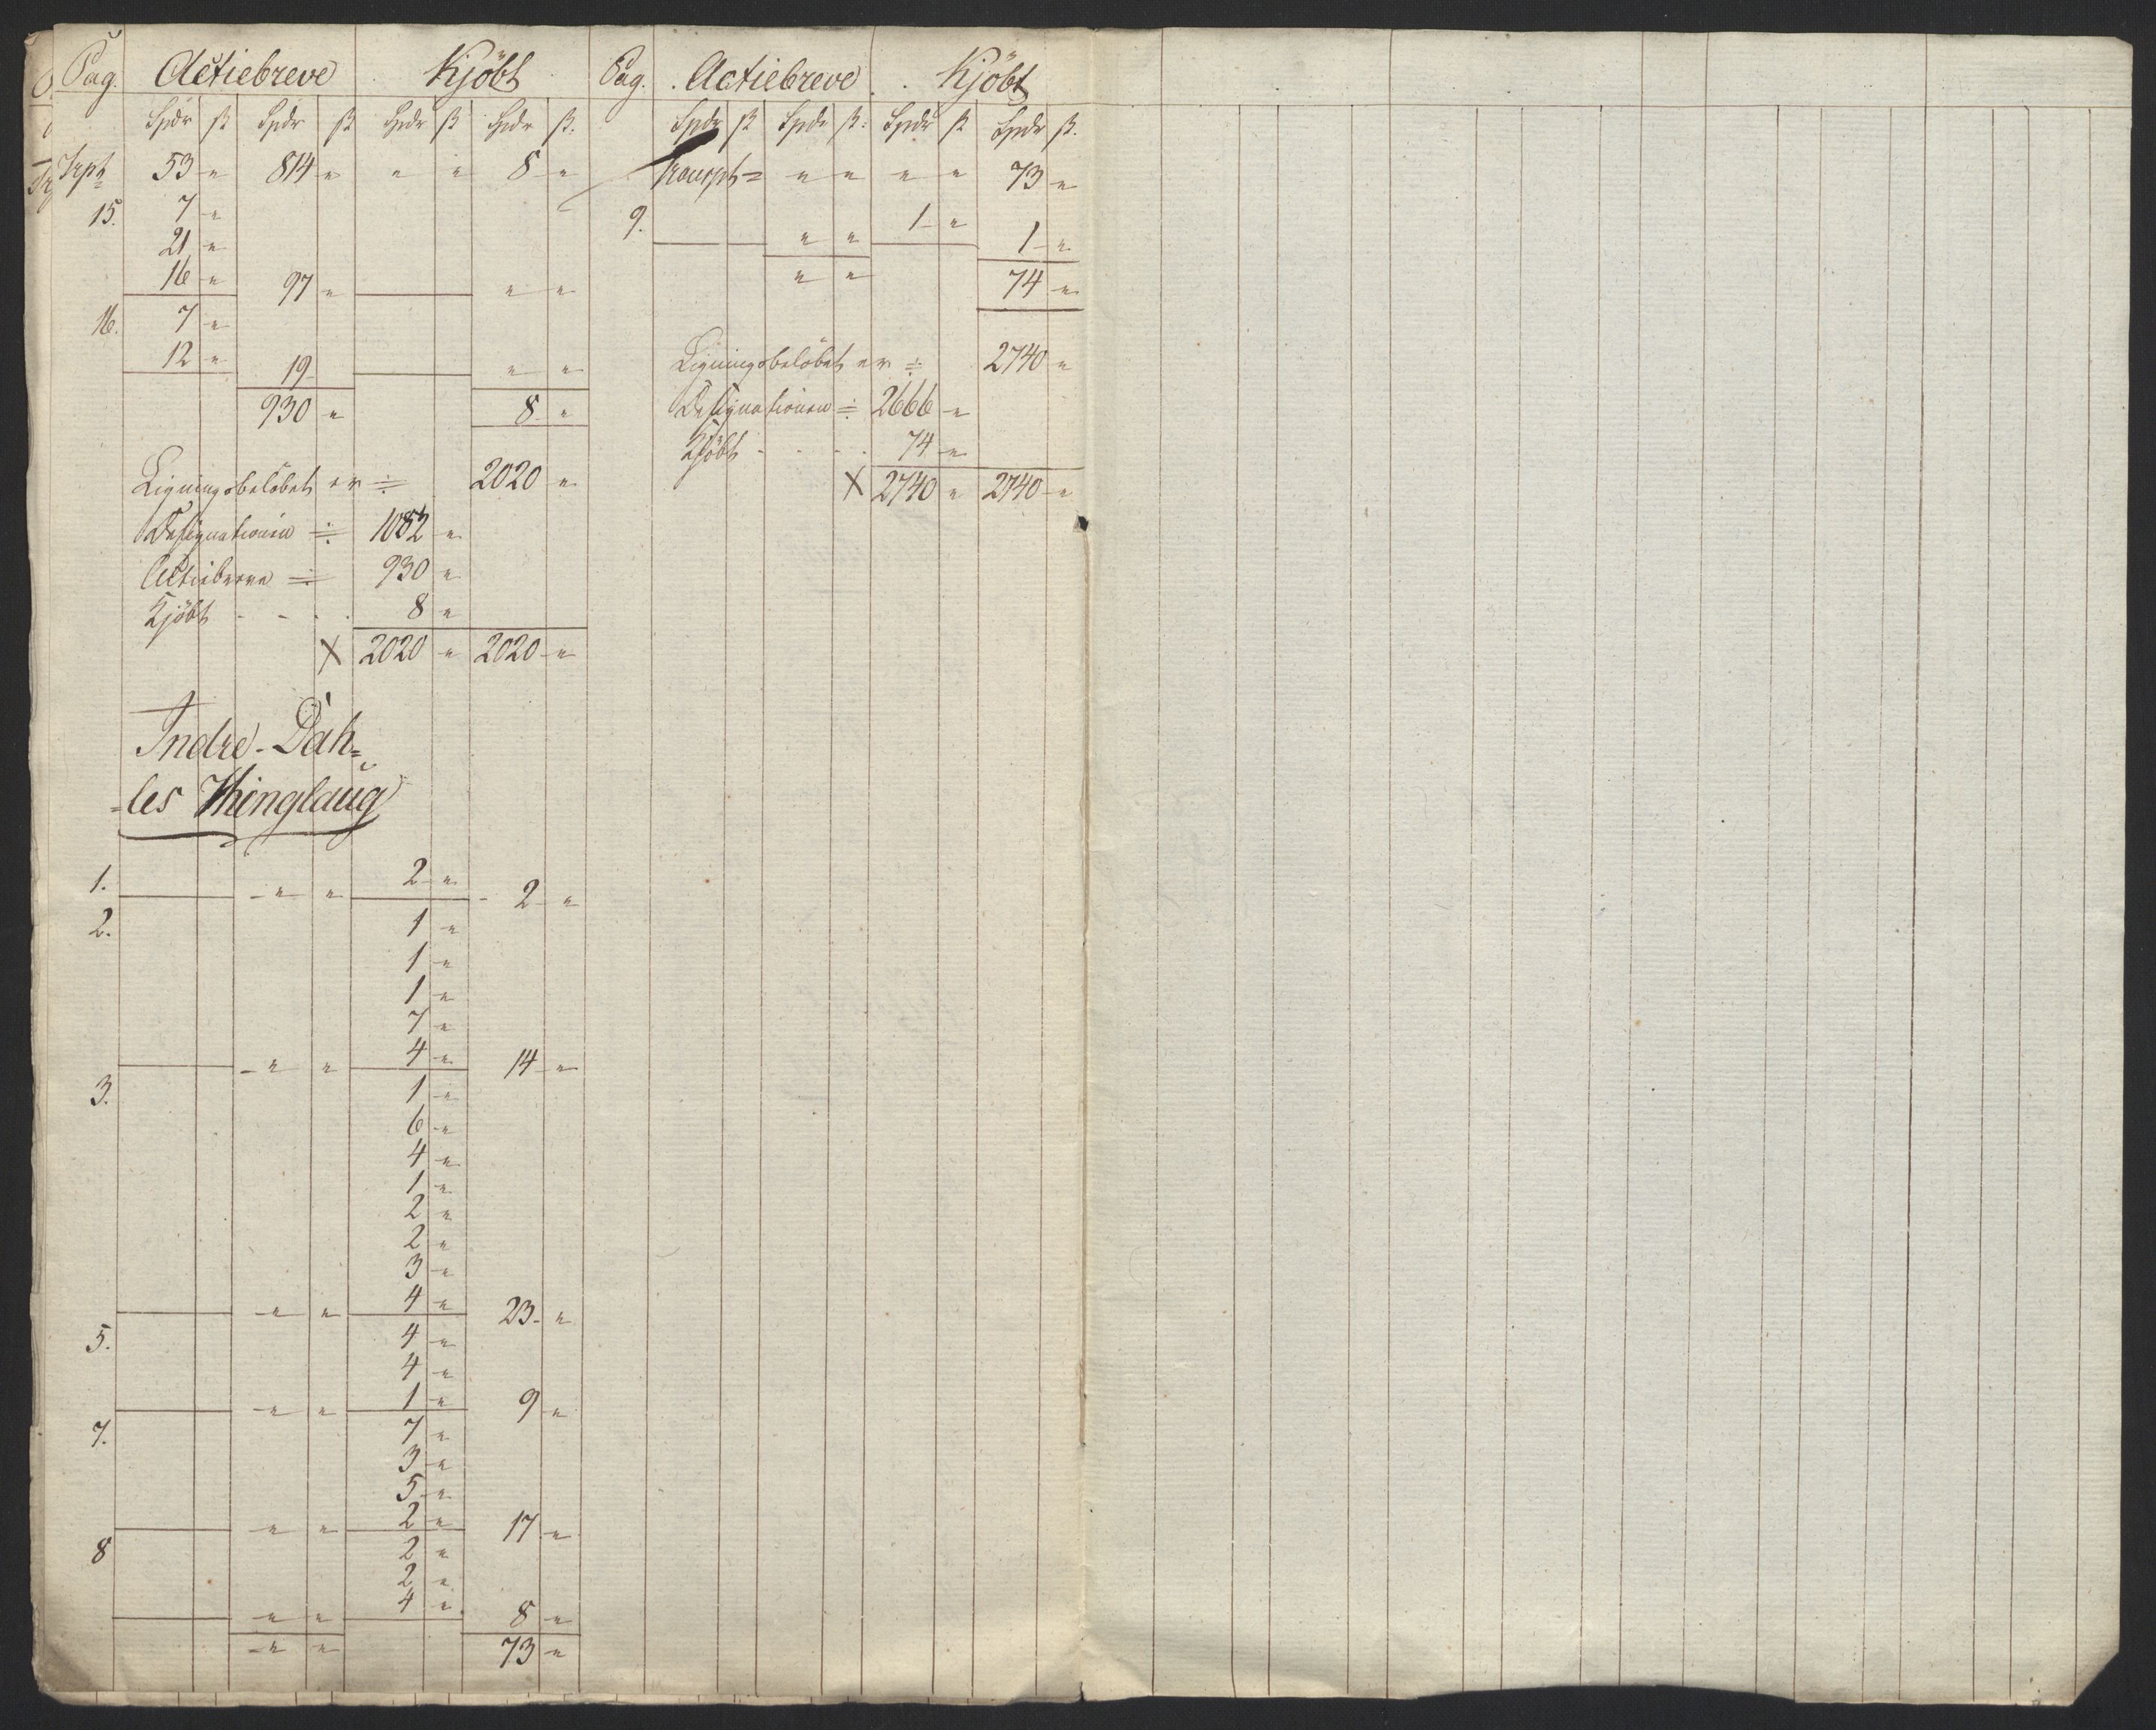 Pag. Actiebreve Kjöbt
Spdr ß Spdr ß Spdr ß Spdr ß.
Trpt 53 " 814 " " " 8 "
15. 7 "
21 "
16 " 97 " " "
16. 7 "
12 " 19 " "
930 " 8 "
Ligningsbelöbet er ÷ 2020 "
Designationen ÷ 1082 "
Actiebreve ÷ 930 "
Kjöbt - - . 8 "
X 2020 " 2020 "
Indre-Dah-
-les Thinglaug
1. " " 2 " 2 "
2. 1 "
1 "
1 "
7 "
" " 4 " 14 "
3. 1 "
6 "
4 "
1 "
2 "
2 "
3 "
" " 4 " 23 "
5. 4 "
4 "
" " 1 " 9 "
7. 7 "
3 "
5 "
" " 2 " 17 "
8 2 "
2 "
" " 4 " 8 "
" " 73 "
Pag. Actiebreve Kjöbt
Spdr ß Spdr ß. Spdr ß Spdr ß.
Transpt= " " " " 73 "
9. " " 1 " 1 "
" " 74 "
Ligningsbelöbet er ÷ 2740 "
Designationen ÷ 2666 "
Kjöbt - - - . 74 "
X 2740 " 2740 "